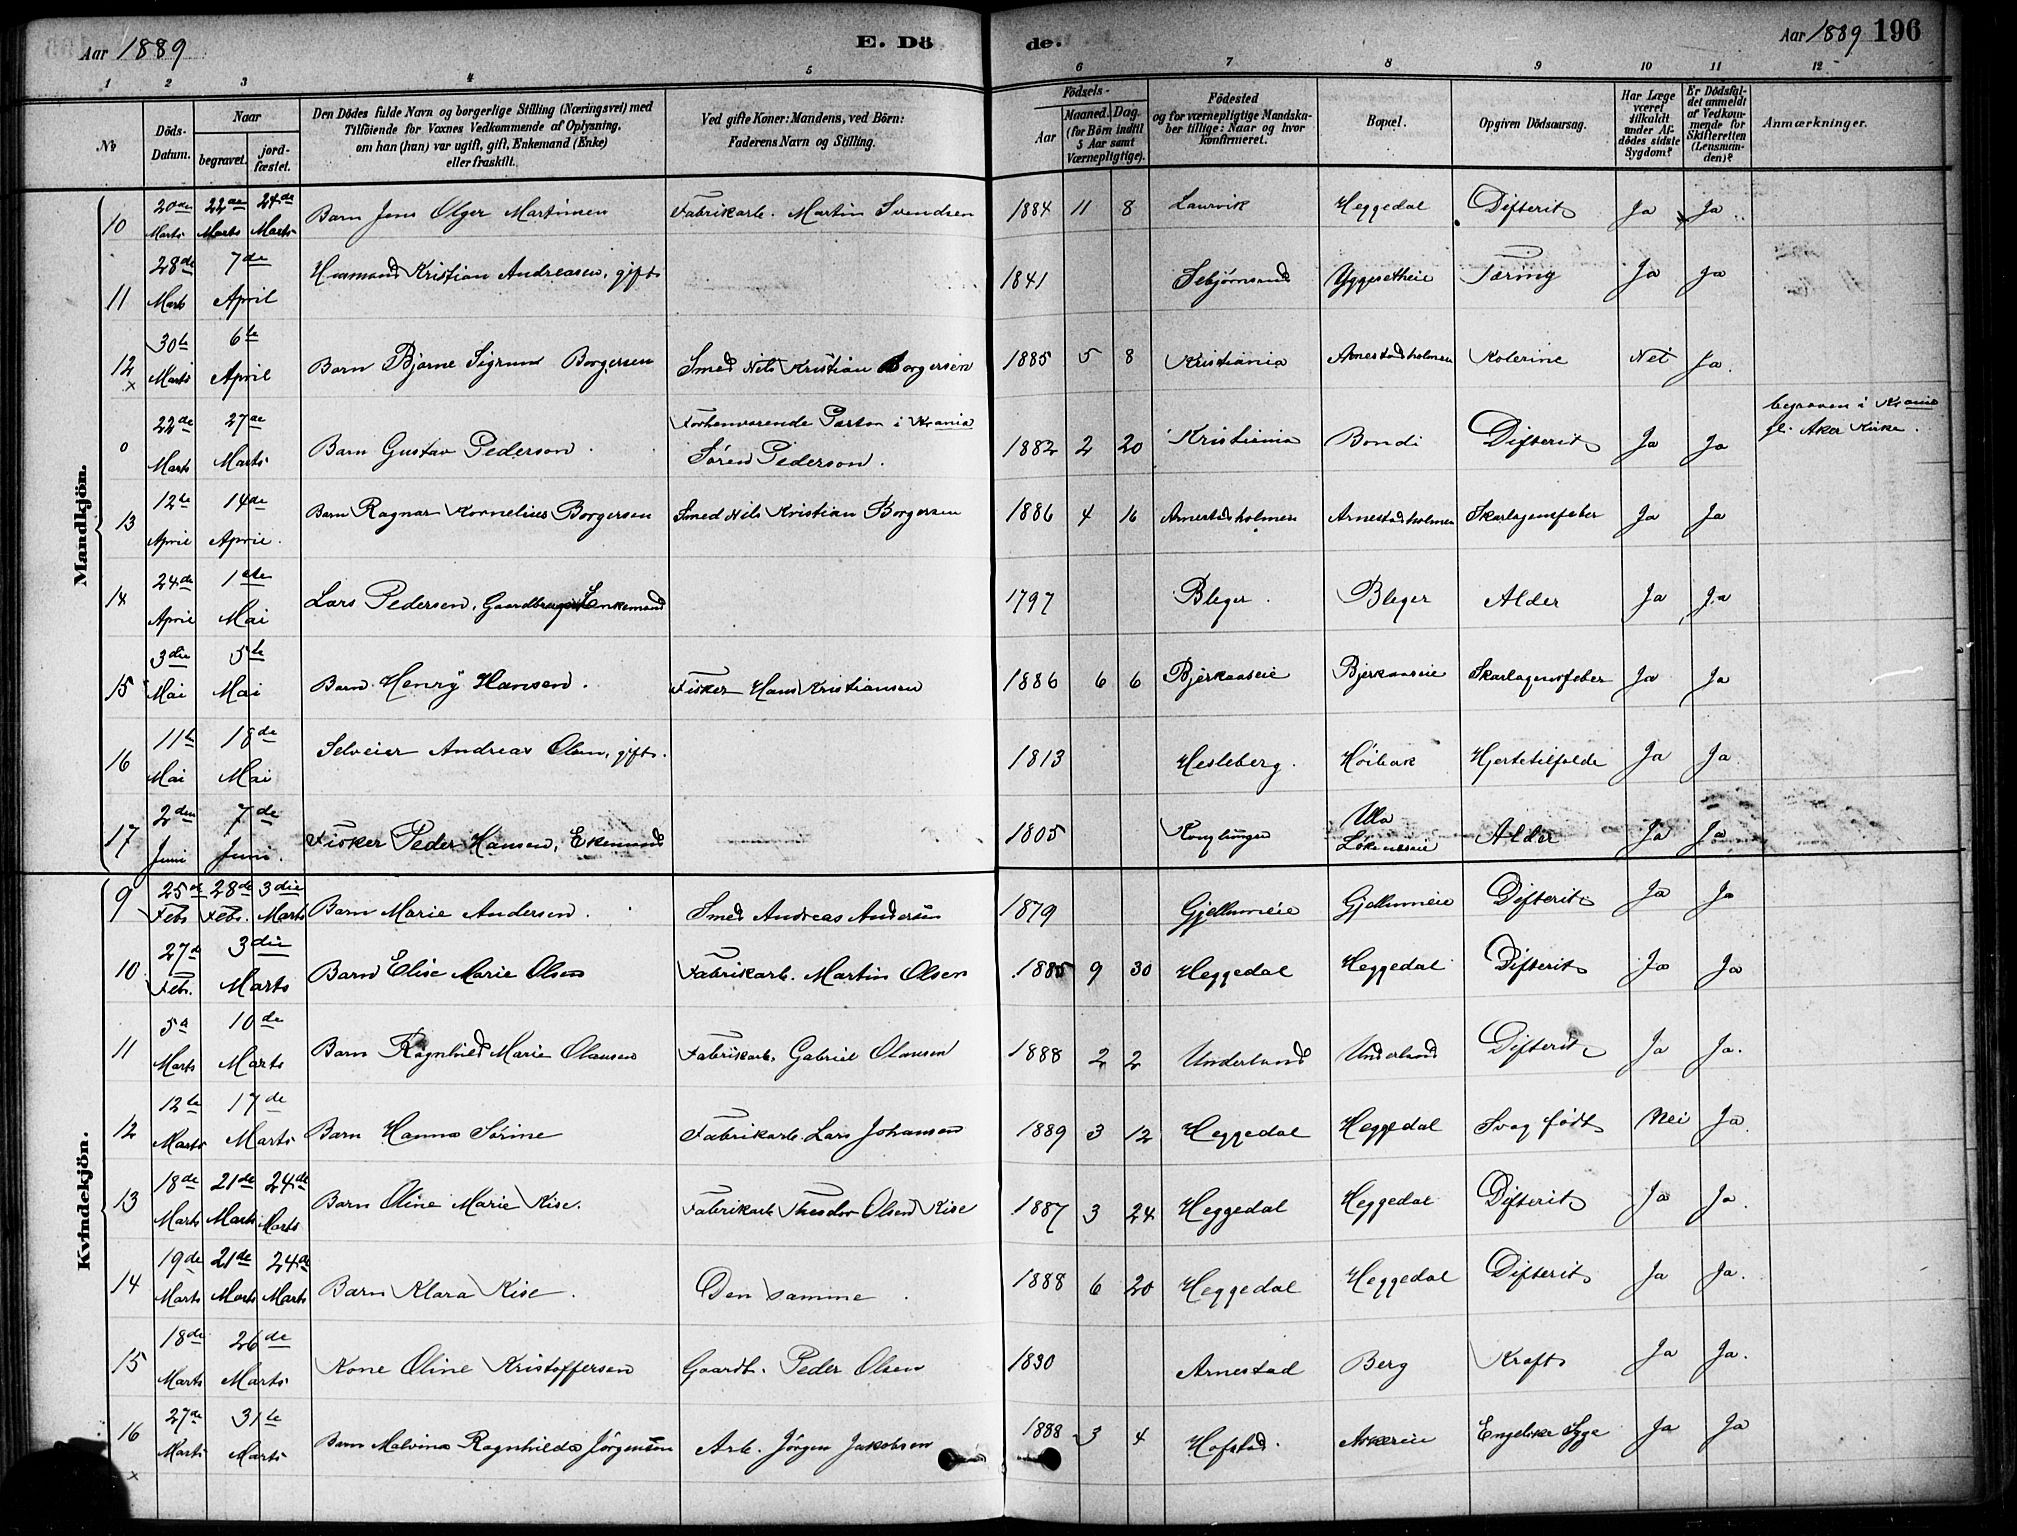 Aar 1889 E. Döde. Aar 1889 196
1 2 3 4 5 6 7 8 9 10 11 12
No
Döds-Datum.
Naar
begravet. jordfæstet.
Den Dödes fulde Navn og borgerlige Stilling (Næringsvei) med Tilföiende for Voxnes Vedkommende af Oplysning, om han (hun) var ugift, gift, Enkemand (Enke) eller fraskilt.
Ved gifte Koner: Mandens, ved Börn: Faderens Navn og Stilling.
Födsels-
Aar
Maaned. Dag.
(for Börn indtil 5 Aar samt Værnepligtige).
Födested og for værnepligtige Mandskaber tillige: Naar og hvor konfirmeret.
Bopæl.
Opgiven Dödsaarsag.
Har Læge været tilkaldt under Afdödes sidste Sygdom?
Er Dödsfaldet anmeldt af Vedkommende for Skifteretten (Lensmanden)?
Anmærkninger.
Mandkjön.
10 20de Marts 22de Marts 24de Marts Barn Jens Olger Martinsen Fabrikarb. Martin Svendsen 1884 11 8 Laurvik Heggedal Difterit Ja Ja
11 28de Marts 7de April Kristian Andreasen, gift 1841 Yggesetheie Tæring Ja Ja
12 x 30te Marts 6te April Barn Bjarne Sigrund Borgersen Smed Nils Kristian Borgersen 1885 5 8 Kristiania Arnestadholmen Kolerine Nei Ja.
0 22de Marts 27de Marts Barn Gustav Pederson. Forhenværende Pastor i Krania Sören Pederson. 1882 2 20 Kristiania Bondi Difterit Ja Ja begraven i Krania gl. Aker Kirke.
13 12te April 14de April. Barn Ragnar Kornelius Borgersen Smed Nils Kristian Borgersen 1886 4 16 Arnestadholmen Arnestadholmen Skarlagensfeber Ja Ja
14 24de April 1ste Mai Lars Pedersen, Gaardbruger Enkemand 1797 Bleger. Bleger Alder Ja Ja
15 3die Mai 5te Mai Barn Henry Hansen. Fisker Hans Kristiansen 1886 6 6 Bjerkaaseie Bjerkaaseie Skarlagensfeber Ja Ja
16 11te Mai 18de Mai Selveier Andreas Olsen, gift. 1813 Hesleberg. Höibak Hjertetilfælde Ja Ja
17 2den Juni 7de Juni. Fisker Peder Hansen, Ekemand 1805 Konglungen Ulla Løkeneseie Alder Ja Ja
Kvindekjön.
9 25de Febr 28de Febr. 3die Marts Barn Marie Andersen. Smed Andreas Andersen 1879 Gjellumeie Gjellumeie Difterit Ja Ja
10 27de Febr. 3die Marts Barn Elise Marie Olsen Fabrikarb. Martin Olsen 1885 9 30 Heggedal Heggedal Difterit Ja Ja
11 5te Marts 10de Marts Barn Ragnhild Marie Olausen Fabrikarb. Gabriel Olausen 1888 2 2 Underlund Underlund Difterit Ja Ja.
12 12te Marts 17de Marts Barn Hanna Sörine Fabrikarb. Lars Johansen 1889 3 12 Heggedal Heggedal Svag född Nei Ja.
13 18de Marts 21de Marts 24de Marts Barn Oline Marie Kise. Fabrikarb Theodor Olsen Kise 1887 3 24 Heggedal Heggedal Difterit Ja Ja.
14 19de Marts 21de Marts 24de Marts Barn Klara Kise. Den samme. 1888 6 20 Heggedal Heggedal Difterit Ja Ja.
15 18de Marts 26de Marts Kone Oline Kristoffersen Gaardb. Peder Olsen 1830 Arnestad Berg Kræft Ja Ja.
16 x 27de Marts 31te Marts Barn Malvina Ragnhilda Jörgensen Arb. Jörgen Jakobsen 1888 3 4 Hofstad. Askereie Engelske Syge Ja Ja